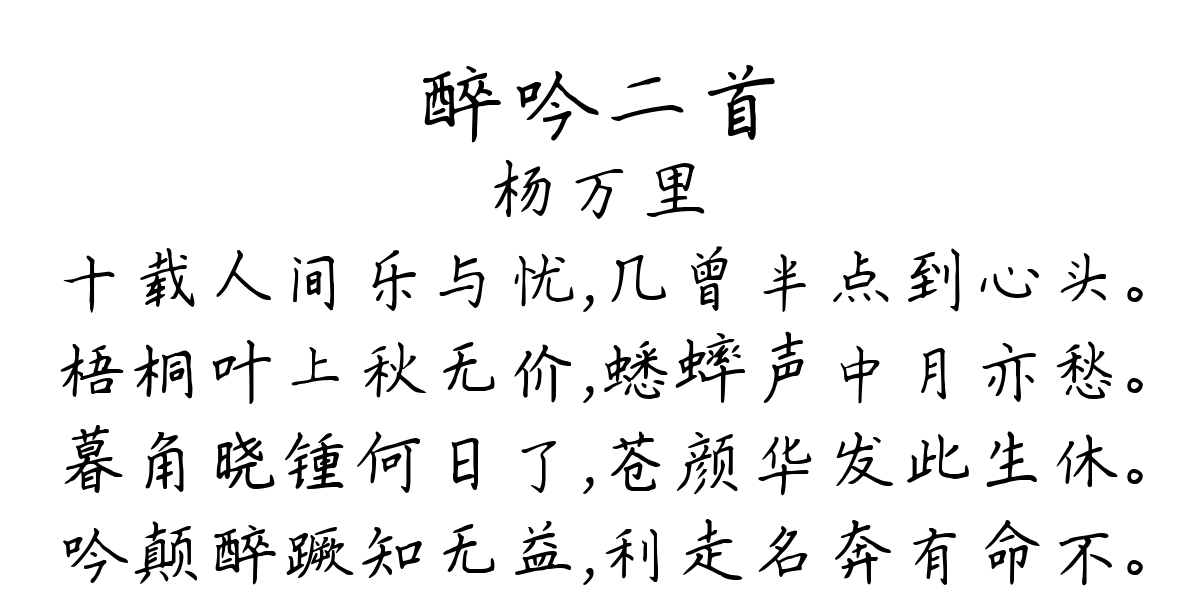 醉吟二首
杨万里
十载人间乐与忧,几曾半点到心头。
梧桐叶上秋无价,蟋蟀声中月亦愁。
暮角晓锺何日了,苍颜华发此生休。
吟颠醉蹶知无益,利走名奔有命不。